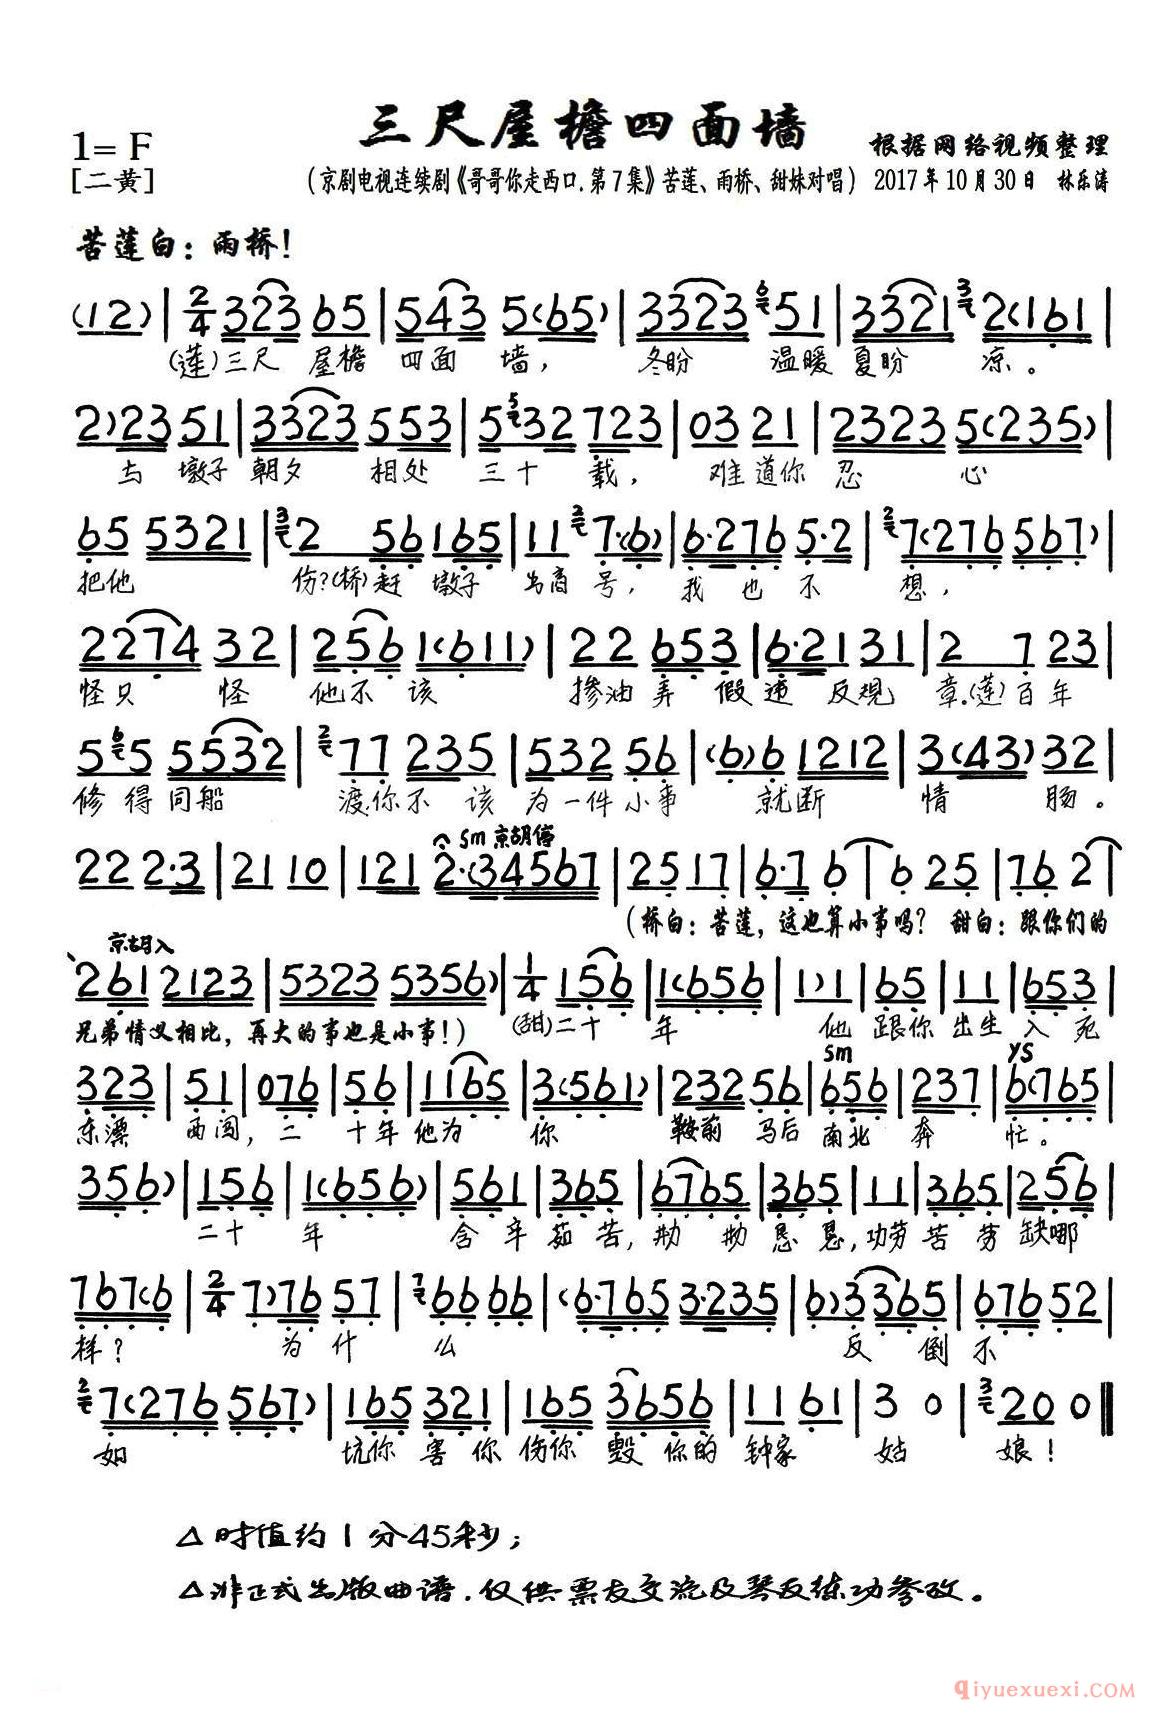 三尺屋檐四面墙
1=F
[二黄]
根据网络视频整理
(京剧电视连续剧《哥哥你走西口.第7集》苦莲、雨桥、甜妹对唱)
2017年10月30日 林乐涛
苦莲白：雨桥！
(12) | 2/4 323 65 | 543 5(65) | 3323 6 51 | 3321 3 2(161 |
(莲)三尺 屋檐 四面 墙， 冬盼 温暖 夏盼 凉。
2)23 51 | 3323 553 | 5 5 32 723 | 03 21 | 2323 5(235) |
与 墩子 朝夕 相处 三十 载， 难道你 忍 心
65 5321 | 3 2 56 165 | 11 2 7·(6) | 6·276 5·2 | 2 7(276 567) |
把他 伤?(桥)赶 墩子 出商 号， 我 也 不 想，
2274 32 | 256 1(611) | 22 653 | 6·21 31 | 2 7 23 |
怪只 怪 他不 该 掺油 弄 假 违 反规 章.(莲)百年
5 6 5 5532 | 2 77 235 | 532 56 | (6)6 1212 | 3(43) 32 |
修 得 同船 渡.你不 该 为一件 小事 就断 情 肠。
sm 京胡停
22 2·3 | 21 10 | 121 2·(34567 | 25 17 | 6·7 6 | 6 25 | 76 2 |
(桥白：苦莲，这也算小事吗？ 甜白：跟你们的
京胡入
261 2123 | 5323 5356) | 1/4 156 | 1(656 | 1)1 | 65 | 11 | 653 |
兄弟情义相比，再大的事也是小事！) (甜)二十 年 他 跟你 出生 入 死
sm YS
323 | 51 | 076 | 56 | 1165 | 3(561) | 232 56 | 656 | 237 | 6(765 |
东漂 西闯， 二 十年 他为 你 鞍前 马后 南北 奔 忙。
356) | 156 | 1(656) | 561 | 365 | 6765 | 365 | 11 | 365 | 256 |
二十 年 含 辛 茹 苦， 勤 勤 恳 恳， 功劳 苦 劳 缺哪
767(6 | 2/4 7)76 57 | 7 66 66 | (6·765 3·235 | 6)3365 | 676 52 |
样？ 为 什 么 反 倒 不
2 7(276 567) | 165 321 | 165 3656 | 11 61 | 3 0 | 3 20 0 ‖
如 坑你 害你 伤你 毁你的 钟家 姑 娘！
△时值约1分45秒；
△非正式出版曲谱.仅供票友交流及琴友练功参改。
qiyuexuexi.com